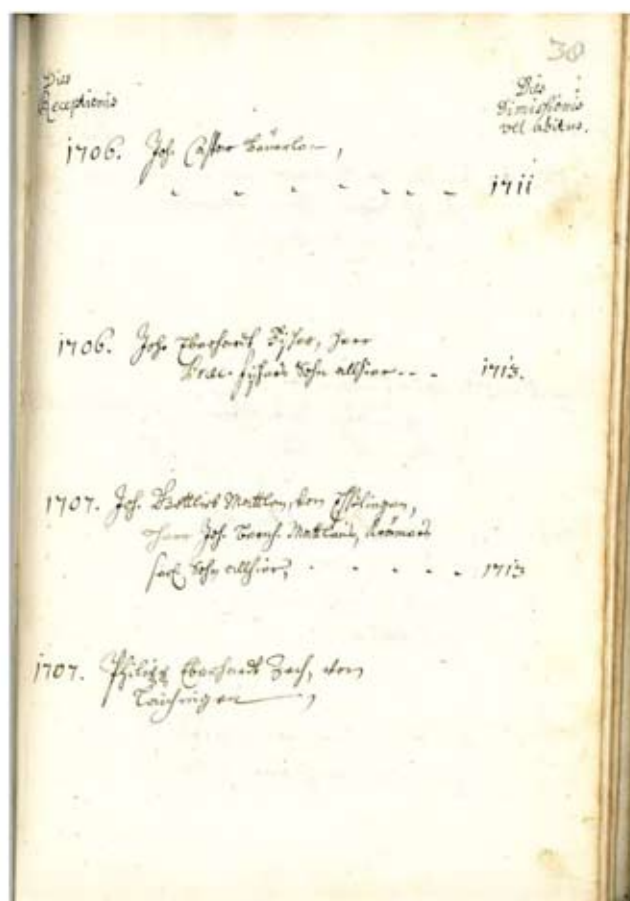 30
Dies
Receptionis
Dies
Dimissionis
vel abitus.
1706. Joh. Castor Bäuerlen,
1711
1706. Joh. Eberhardt Fischer, Herr
Sohn allhier - - - 1713.
1707. Joh. Gottlieb Mattlen, von Esslingen,
Herr Joh. Bernh. Krämers
seel. Sohn allhier, 1713
1707. Philipp Eberhardt Zech, von